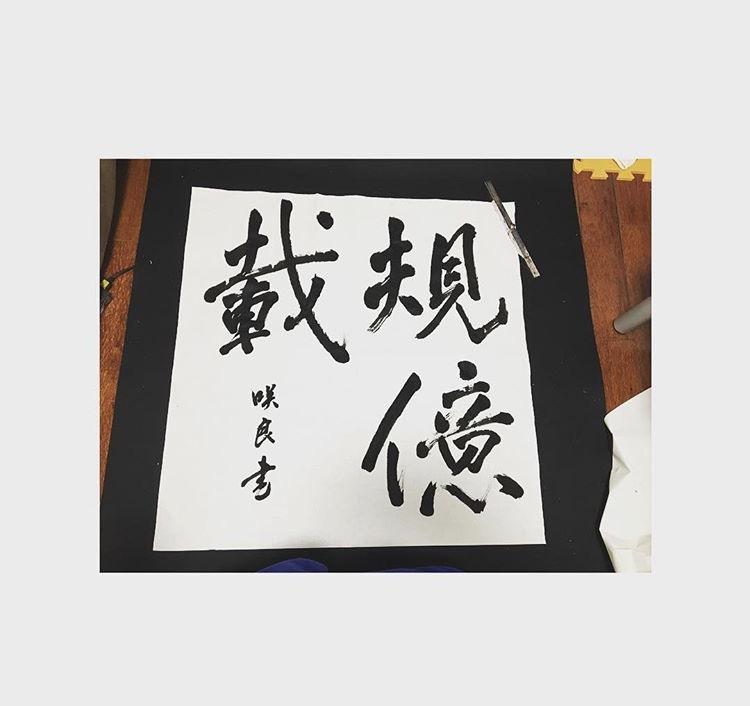 規億
載
咲良書